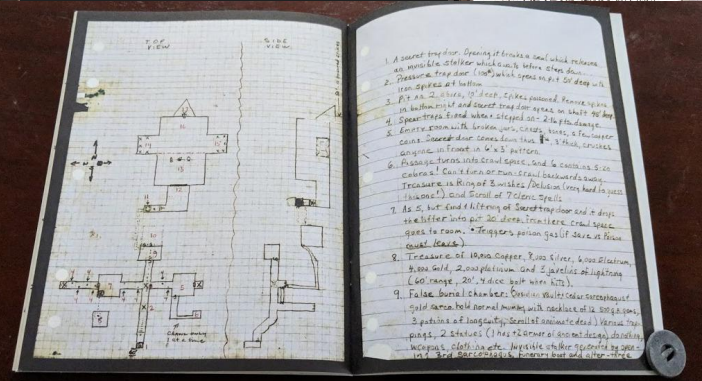 TOP
VIEW
SIDE
VIEW
1. A secret trap door. Opening it breaks a seal which releases
an invisible stalker which awaits before steps down.
2. Pressure trap door (100#) which opens on pit 50' deep with
iron spikes at bottom
3. Pit As 2, above, 10' deep, spikes poisoned. Remove spikes
in bottom right and secret trap door opens on shaft 40' deep.
4. Spear traps fixed when stepped on - 2-16 pts damage.
5. Empty room with broken jars, chests, bones, a few copper
coins. Secret door comes down thus 3' thick, crushes
anyone in front in 6'x3' pattern.
6. Passage turns into crawl space, and 6 contains
cobras! Can't turn or run-crawl backwards away
Treasure is Ring of 3 wishes / Delusion (very hard to guess
this one!) and Scroll of 7 Cleric Spells
7. As 5, but find + lifting of secret trap door and it drops
the lifter into pit 20' deep, from there crawl space
goes to room. • Triggers poison gas (if save vs Poison
must leave)
8. Treasure of 10,000 Copper, 8,000 Silver, 6,000 Electrum,
4,000 Gold, 2,000 platinum and 3 javelins of lightning
(60' range, 20', 4 dice bolt when hits).
9. False burial chamber: Cedar sarcophagus of
gold hold normal mummy with necklace of 12 500 g.p. gems,
3 potions of longevity, Scroll of animate dead) Various trap-
pings, 2 statues (1 has +2 armor of ancient design)
weapons, clothing etc. Invisible stalker generated by open-
3rd Sarcophagus, funerary boat and alter - three
Chams
1 at a time